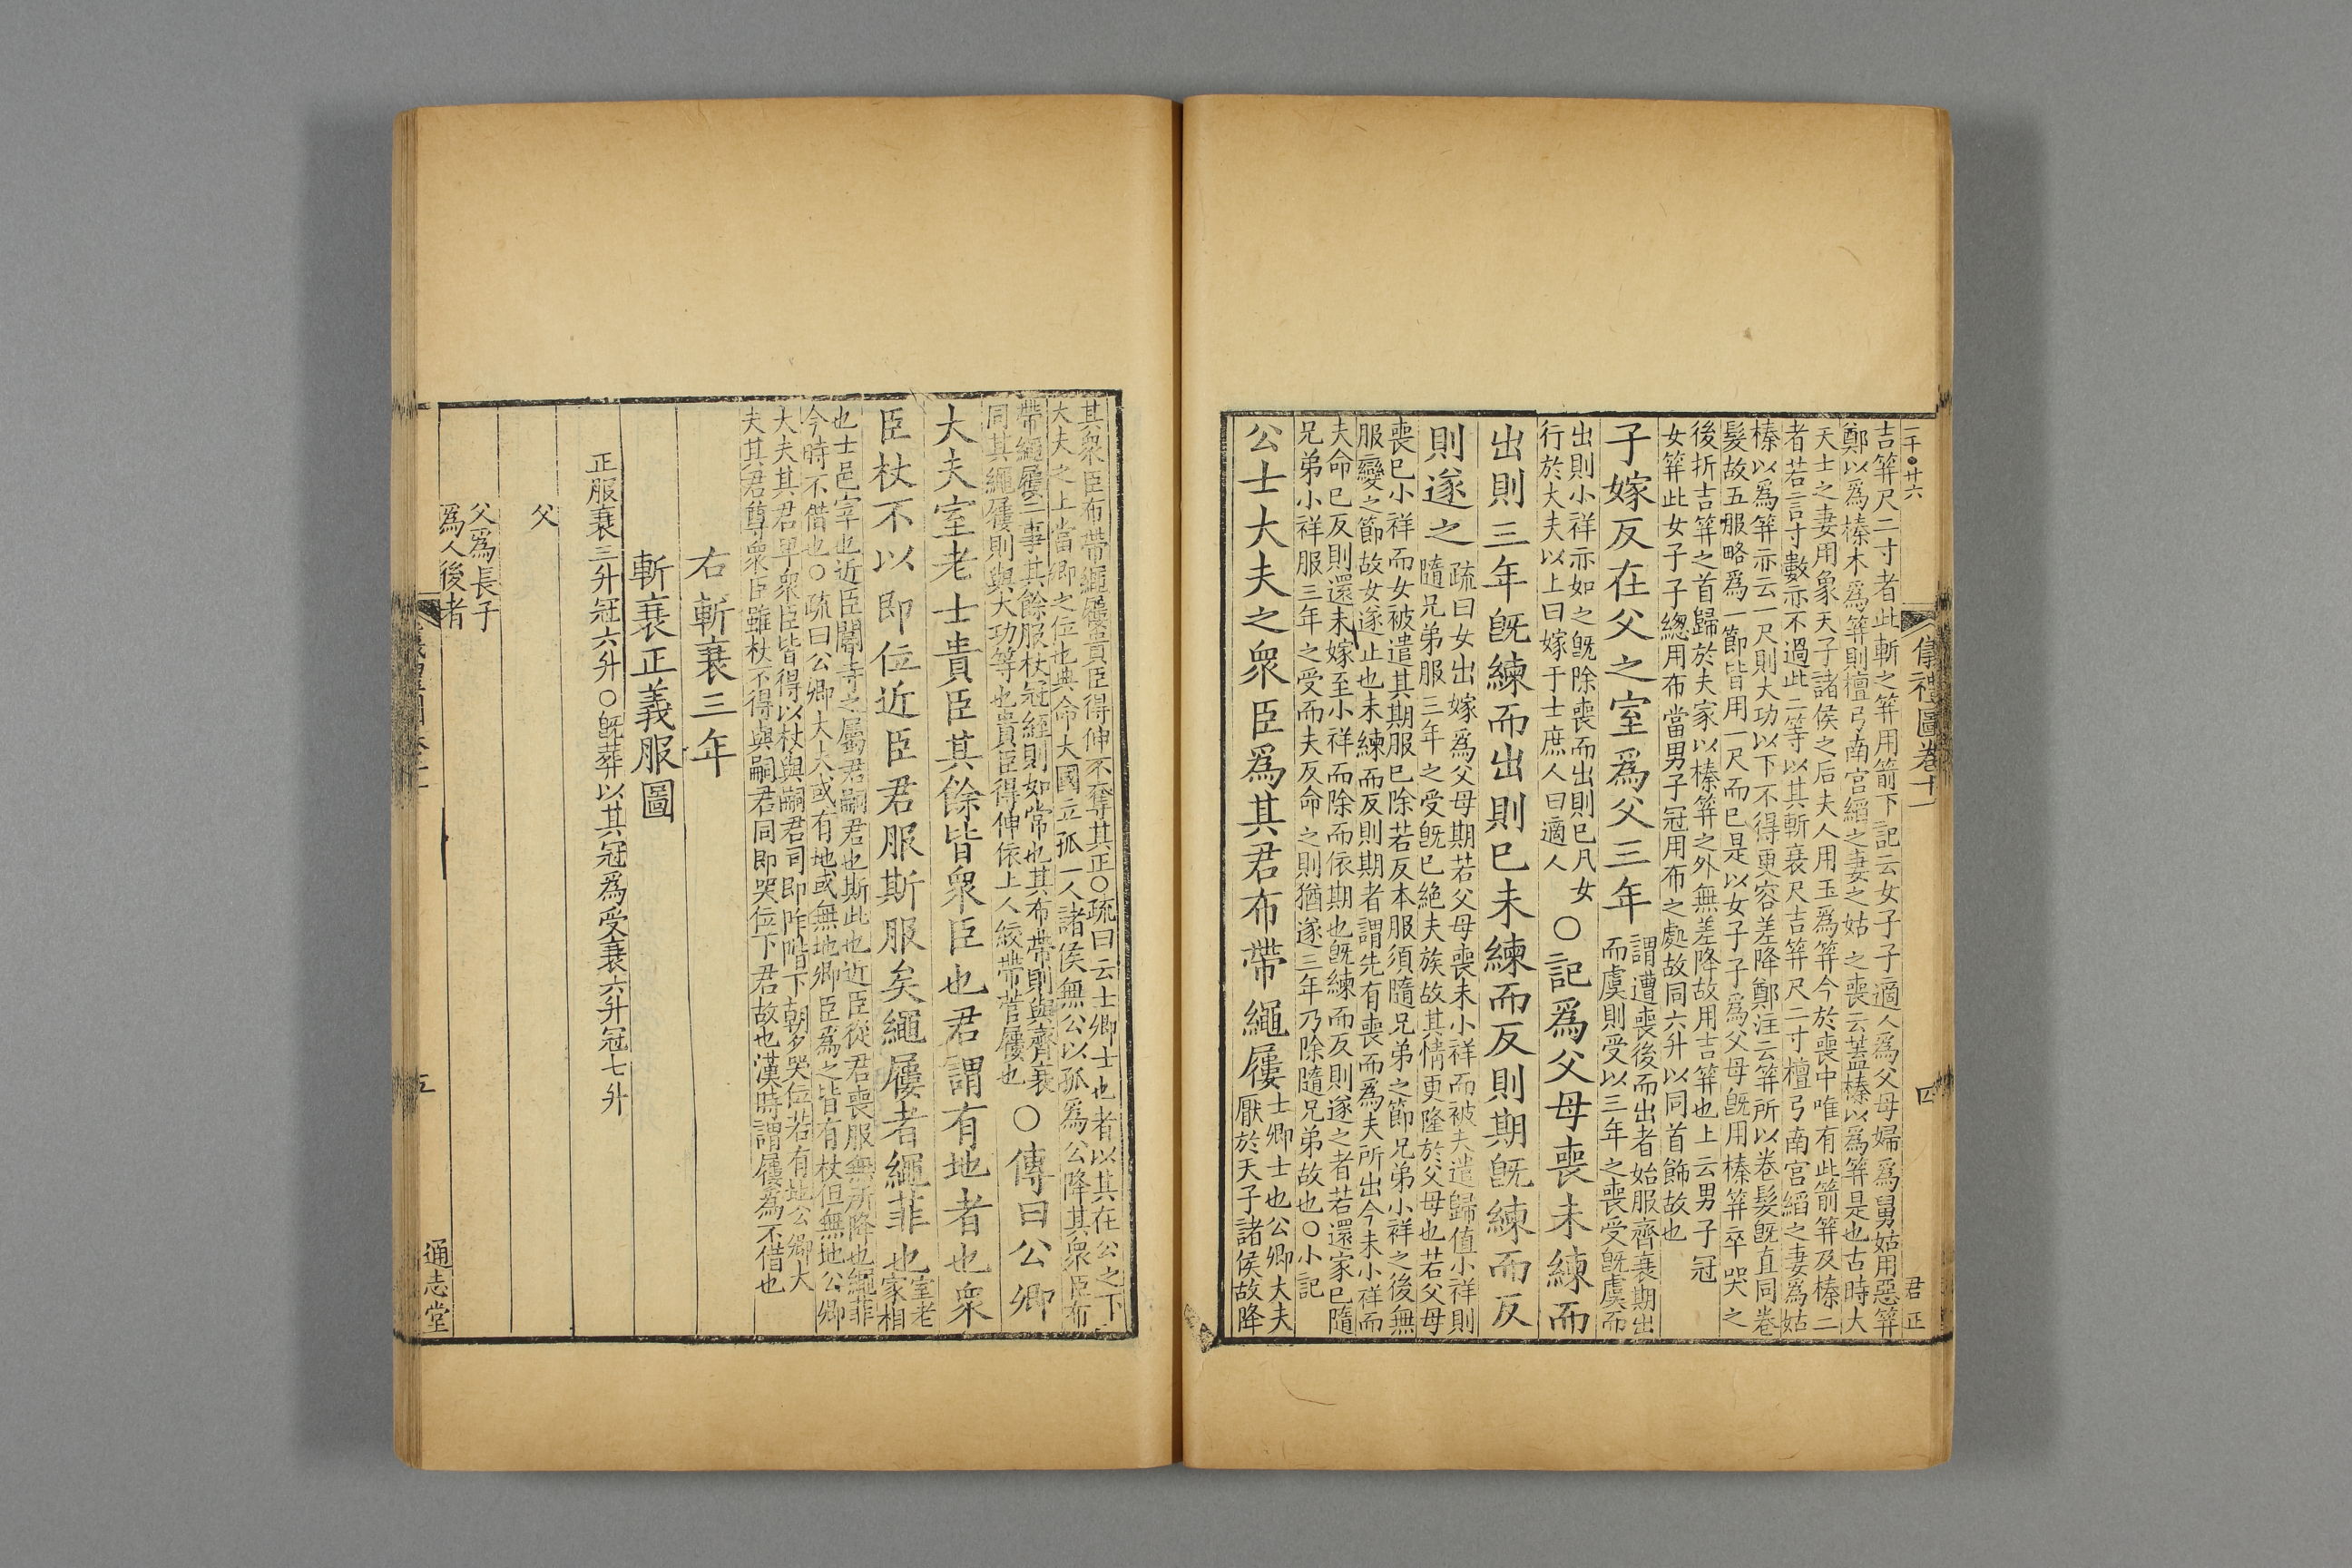 一千●廿六
儀禮圖卷十一
四
君正
吉筓尺二寸者此斬之筓用箭下記云女子子適人爲父母婦爲舅姑用惡筓
鄭以爲榛木爲筓則檀弓南宮縚之妻之姑之喪云蓋榛以爲筓是也古時大
夫士之妻用象天子諸侯之后夫人用玉爲筓今於喪中唯有此箭筓及榛二
者若言寸數亦不過此二等以其斬衰尺吉筓尺二寸檀弓南宮縚之妻爲姑
榛以爲筓亦云一尺則大功以下不得更容差降鄭注云筓所以卷髮旣直同卷
髮故五服略爲一節皆用一尺而已是以女子子爲父母旣用榛筓卒哭之
後折吉筓之首歸於夫家以榛筓之外無差降故用吉筓也上云男子冠
女筓此女子子緫用布當男子冠用布之處故同六升以同首飾故也
子嫁反在父之室爲父三年
謂遭喪後而出者始服齊衰期出
而虞則受以三年之喪受旣虞而
出則小祥亦如之旣除喪而出則已凡女
行於大夫以上曰嫁于士庶人曰適人
○記爲父母喪未練而
出則三年旣練而出則已未練而反則期旣練而反
則遂之
疏曰女出嫁爲父母期若父母喪未小祥而被夫遣歸值小祥則
隨兄弟服三年之受旣已絶夫族故其情更隆於父母也若父母
喪已小祥而女被遣其期服已除若反本服須隨兄弟之節兄弟小祥之後無
服變之節故女遂止也未練而反則期者謂先有喪而爲夫所出今未小祥而
夫命已反則還未嫁至小祥而除而依期也旣練而反則遂之者若還家已隨
兄弟小祥服三年之受而夫反命之則猶遂三年乃除隨兄弟故也○小記
公士大夫之衆臣爲其君布帶繩屨
士卿士也公卿大夫
厭於天子諸侯故降
其衆臣布帶繩屨貴臣得伸不奪其正○疏曰云士卿士也者以其在公之下
大夫之上當卿之位也典命大國立孤一人諸侯無公以孤爲公降其衆臣布
帶繩屨二事其餘服杖冠絰則如常也其布帶則與齊衰
同其繩屨則與大功等也貴臣得伸依上人絞帶菅屨也
○傳曰公卿
大夫室老士貴臣其餘皆衆臣也君謂有地者也衆
臣杖不以即位近臣君服斯服矣繩屨者繩菲也
室老
家相
也士邑宰也近臣閽寺之屬君嗣君也斯此也近臣從君喪服無所降也繩菲
今時不借也○疏曰公卿大夫或有地或無地卿臣爲之皆有杖但無地公卿
大夫其君卑衆臣皆得以杖與嗣君同即阼階下朝夕哭位若有地公卿大
夫其君尊衆臣雖杖不得與嗣君同即哭位下君故也漢時謂屨爲不借也
右斬衰三年
斬衰正義服圖
正服衰三升冠六升○旣葬以其冠爲受衰六升冠七升
父
父爲長子
爲人後者
五
通志堂